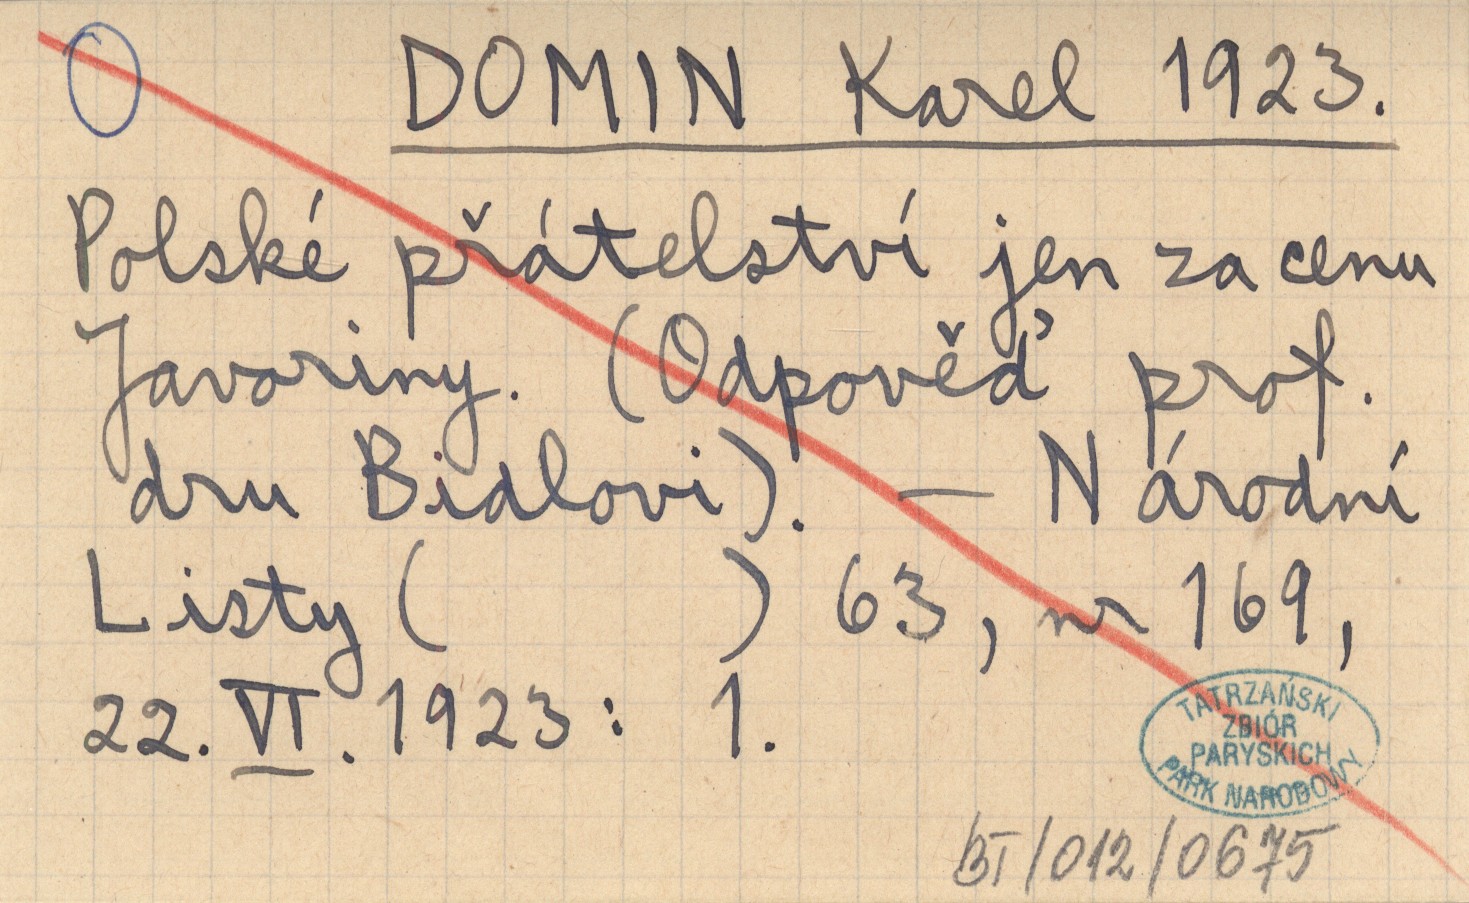 DOMIN Karel 1923.
Polské přátelství jen za cenu
Javoriny. (Odpověď prof.
dru Bidlovi). — Národní
Listy (          ) 63, nr 169,
22. VI. 1923: 1.
TATRZAŃSKI
ZBIÓR
PARYSKICH
PARK NARODOWY
BT/012/0675